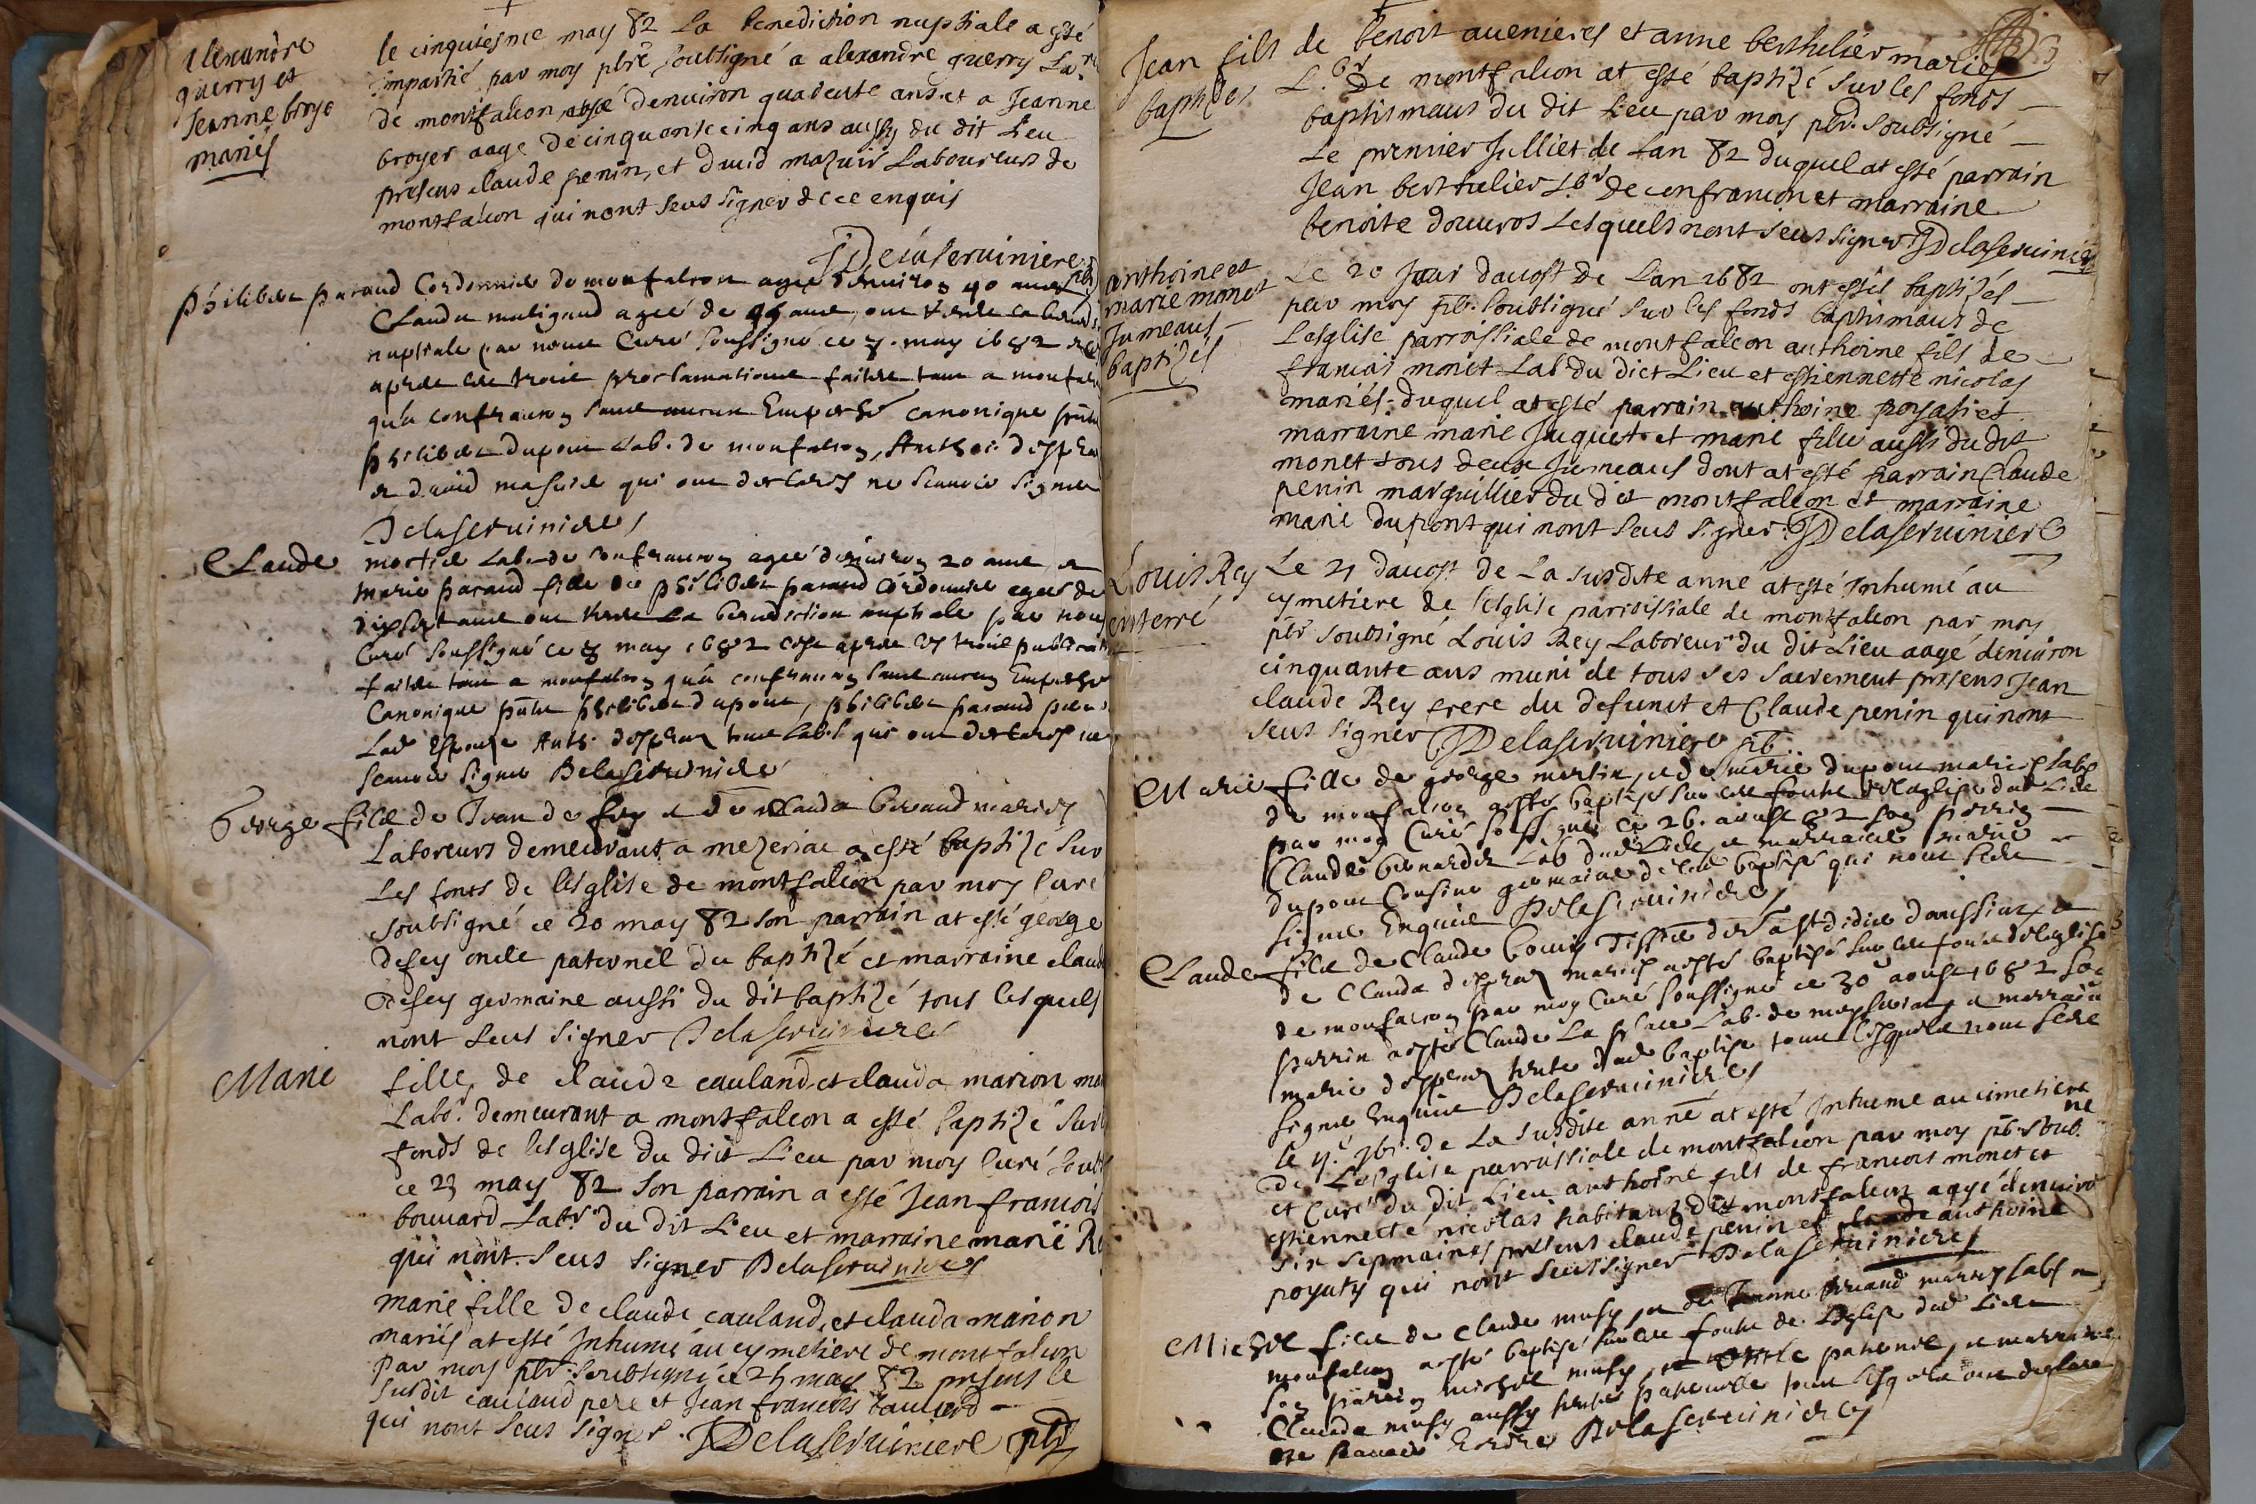 Alexandre
guerry et
Jeanne broye
mariés
le cinquiesme may 82 La benediction nuptiale a esté
impartié par moy pbre soubsigné a alexandre guerry La.r
de montfalcon aagé denuiron quarente ans et a Jeanne
broyer aage de cinquante cinq ans aussy du dit Lieu
presens claude penin, et dauid mazuir Laboureurs de
montfalcon qui nont seus signer de ce enquis
JDelaseruiniere pbr
Philiber paraud Cordonnier de monfalcon agée denuiron 40 ans
Clauda maligand agée de ans, ont
nuptiale par nous Curé soussigné ce 8. may 1682
apres les trois proclamations faittes tant a monfalcon
qu'a confrancon sans aucun Empesché canonique
philiber dupont Lab. de monfalcon, Anthoi.
et dauid masuir qui ont declarés ne scauoir signer
Delaseruinieres
Claude mortier Lab. de confrancon agée denuiron 20 ans, et
marie paraud fille de philiber paraud Cordonnier agée de
dixsept ans ont La benediction nuptiale par nous
Curé soussigné ce 8 may 1682 apres les trois publications
faittes tant a monfalcon qu'a confrancon sans aucun Empesché
Canonique philiber dupont, philiber paraud pere
Lad Espouze Anth. tous Lab. qui ont declarés ne
scauoir signer Delaseruinieres
George fils de Jean de fey et de Clauda beraud mariés
Laboreurs demeurant a mezeriac a esté baptizé sur
Les fonts de lesglise de montfalcon par moy Curé
soubsigné ce 20 may 82 son parrain at esté george
defey oncle paternel du baptizé et marraine claud
Defey germaine aussi du dit baptizé tous lesquels
nont seus signer Delaseruinieres
Marie fille de claude cauland et clauda marion ma
Labo.r demeurant a montfalcon a esté baptizé sur
fonds de lesglise du dit Lieu par moy Curé soub
ce 23 may 82 Son parrain a esté Jean francois
bouuard Labr du dit Lieu et marraine marie R
qui nont seus signer Delaseruinieres
marie fille de claude cauland, et clauda marion
mariés at esté Inhumé au cymetiere de montfalcon
par moy pbr. soubsigné ce 25 may 82 presens le
susdit cauland pere et Jean francois
qui nont seus signer. JDelaseruiniere pbr
Jean fils de benoit auenieres et anne berthelier mariés
baptizés
L.br De montfalcon at esté baptizé sur les fonds
baptismaus du dit Lieu par moy pbr. soubsigné
Le premier Julliet de Lan 82 duquel at esté parrain
Jean berthelier Lbr de confrancon et marraine
benoite douuros Lesquels nont seus signer JDelaseruiniere
anthoine et
marie monet
Jumeaus
baptizés
Le 20 Jour daoust de Lan 1682 ont estés baptizés
par moy pb. soubsigné sur les fonds baptismaus de
Lesglise parroissiale de montfalcon anthoine fils de
francois monet Lab. du dict Lieu et estiennette nicolas
mariés. duquel at esté parrain anthoine poyati et
marraine marie Juquet. et marie fille aussi du dit
monet tous deux Jumeaus dont at esté parrain Claude
penin marguillier du dit montfalcon et marraine
marie dupont qui nont seus signer. JDelaseruiniere
Louis Rey
enterré
Le 21 daoust de La susdite anné at esté Inhumé au
cymetiere de lesglise parroissiale de montfalcon par moy
pbr soubsigné Louis Rey Laboreur du dit Lieu aagé denuiron
cinquante ans muni de tous ses sacrement presens Jean
claude Rey frere du defunct et Claude penin qui nont
seus signer JDelaseruiniere pb.
Marie fille de george merlin, et de marie dupont mariés Labs
de monfalcon a esté baptisé sur les fonts de Leglise dud Lieu
par moy Curé soussigné ce 26. aoust 82 son parrin
Claude bernarder Lab dud Lieu, et marraine marie
dupont Cousine germaine de lad baptisé qui nont
signer Enquis Delaseruinieres
Claude fils de Claude bouis Tissier de St didier daussiat, et
de Clauda mariés a esté baptisé sur les fonts de leglise
de monfalcon par moy Curé soussigné ce 30 aoust 1682 son
parrin a esté Claude La place Lab. de et marraine
marie tante dud baptisé tous lesquels nont
signer Enquis Delaseruinieres
le 4.e 7br. de La susdite anné at esté Inhumé au cimetiere
De Lesglise parrussiale de montfalcon par moy pb. soub.ne
et Curé du dit Lieu anthoine fils de francois monet et
estiennette nicolas habitans du dit montfalcon aagé denuiro
six sepmaines presens claude penin et anthoine
poyaty qui nont seus signer Delaseruinieres
Michel fils de Claude musy, et de Jeanne mariés Labs
monfalcon a esté baptisé sur les fonts de Leglise dud Lieu
son parrin michel musy, oncle paternel, et marraine
Clauda musy aussy tante paternelle tous lesquels ont declaré
ne scauoir Delaseruinieres